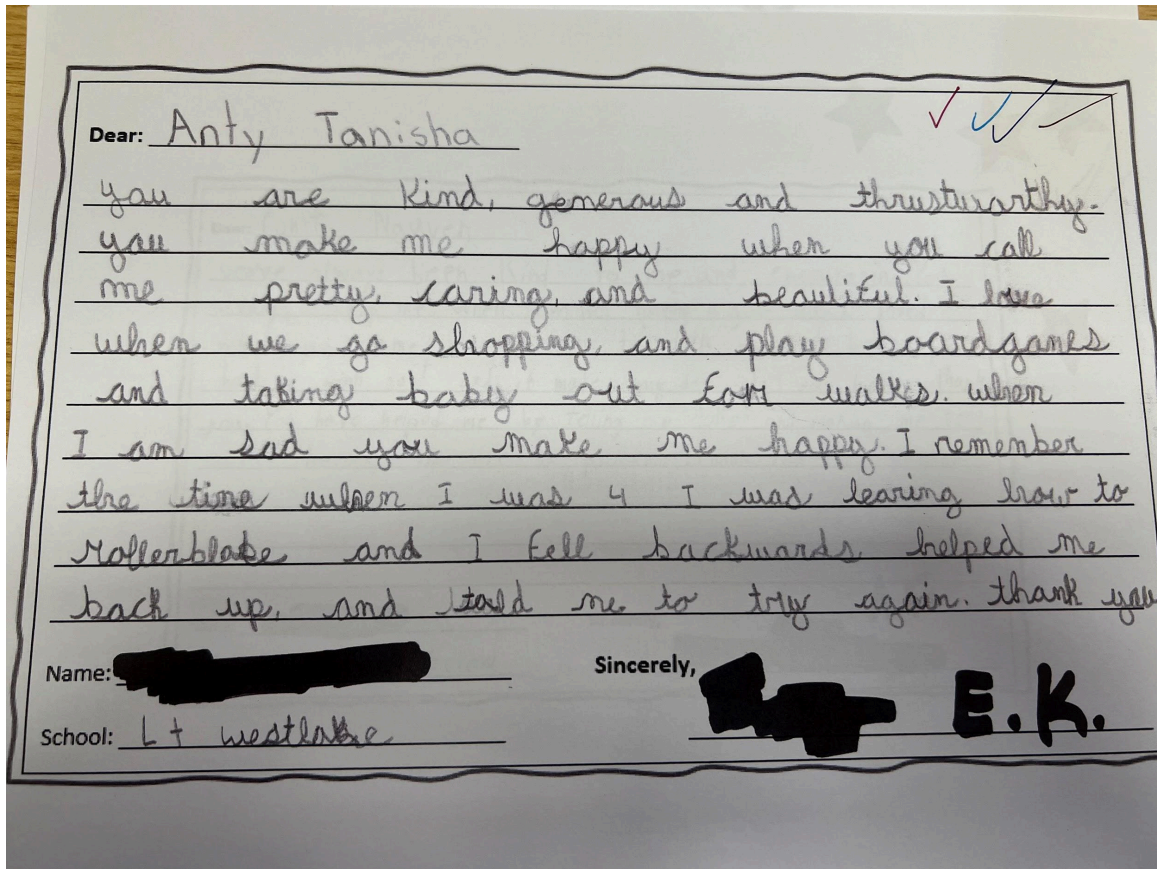 Dear: Anty Tanisha
you are kind, generous and thrustwarthy.
you make me happy when you call
me pretty, caring, and beauliful. I love
when we go shopping, and play boardganes
and taking baby out for walks. when
I am sad you make me happy. I remember
the time when I was 4 I was learing how to
rollerblade and I fell backwards, helped me
back up, and told me to try again. thank you
Name:
Sincerely,
E.K.
School: Lt westlake